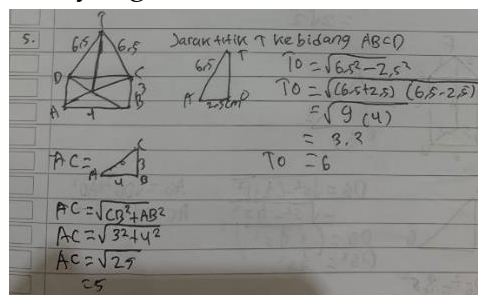 5.
T
6,5
6,5
D
C
3
A
4
B
Jarak titik T ke bidang ABCD
6,5
T
A
2,5cm
O
TO = √6,5² - 2,5²
TO = √(6,5+2,5) (6,5-2,5)
= √9 (4)
= 3.2
TO = 6
AC =
C
3
A
4
B
AC = √CB²+AB²
AC = √3²+4²
AC = √25
= 5